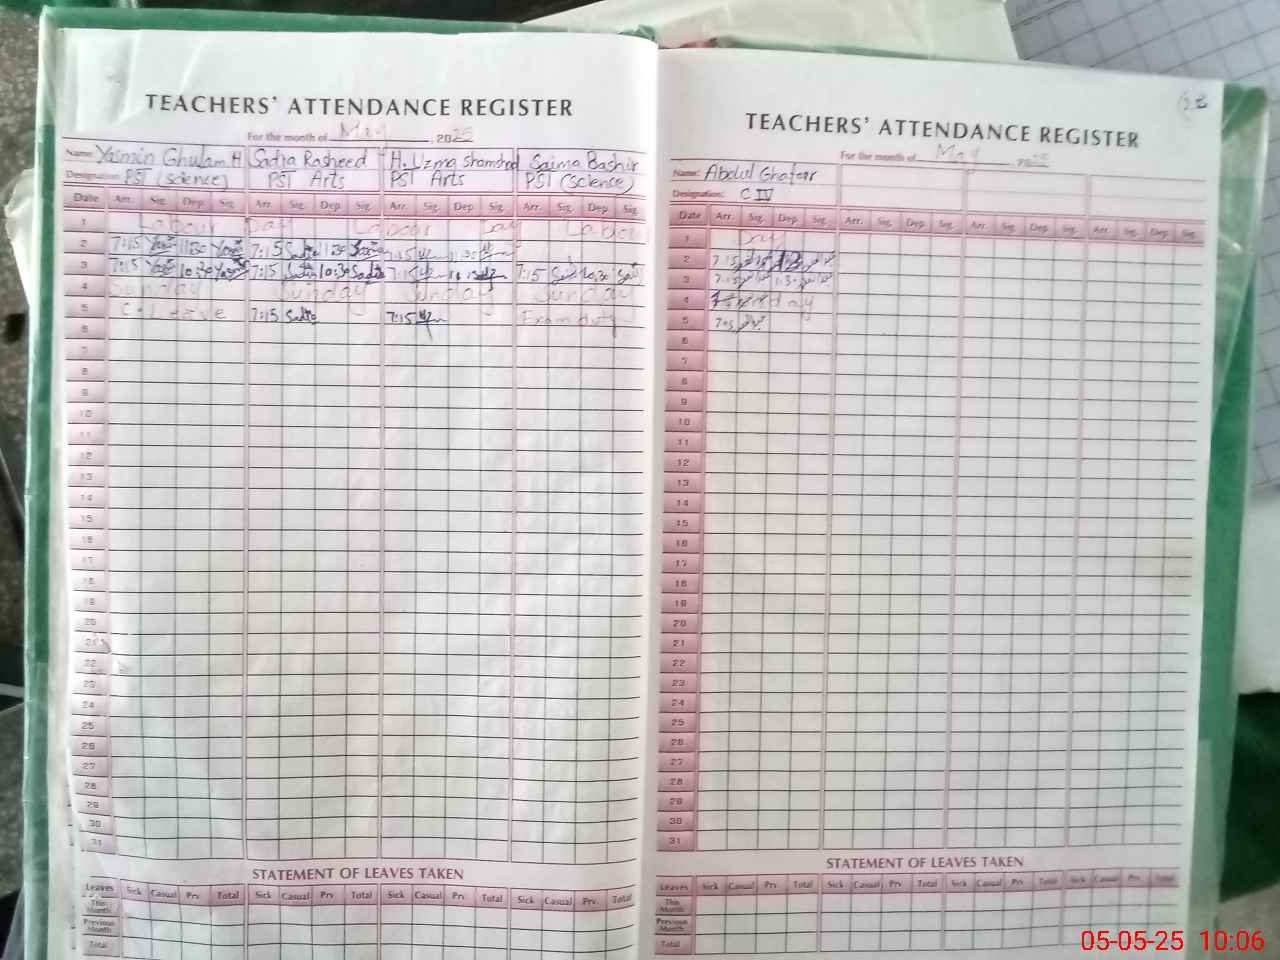 TEACHERS' ATTENDANCE REGISTER
For the month of May, 2025
Name: Yasmin Ghulam H Sadia Rasheed H. Uzma Shamshad Saima Bashir
Designation: PST (science) PST Arts PST Arts PST (Science)
Date Arr. Sig. Dep. Sig. Arr. Sig. Dep. Sig. Arr. Sig. Dep. Sig. Arr. Sig. Dep. Sig.
1 Labour Day Labour Day Labour
2 7:15 11:30 7:15 Sadia 11:30 Sadia 7:15 11:30
3 7:15 10:30 7:15 Sadia 10:30 Sadia 7:15 10:30 7:15 10:30
4 Sunday Sunday Sunday Sunday
5 C. Leave 7:15 Sadia 7:15 Exam duty
6
7
8
9
10
11
12
13
14
15
16
17
18
19
20
21
22
23
24
25
26
27
28
29
30
31
STATEMENT OF LEAVES TAKEN
Leaves Sick Casual Prv. Total Sick Casual Prv. Total Sick Casual Prv. Total Sick Casual Prv. Total
This Month
Previous Month
Total
TEACHERS' ATTENDANCE REGISTER
For the month of May, 2025
Name: Abdul Ghafoor
Designation: C IV
Date Arr. Sig. Dep. Sig. Arr. Sig. Dep. Sig. Arr. Sig. Dep. Sig. Arr. Sig. Dep. Sig.
1 Day
2 7:15
3 7:15
4
5
6
7
8
9
10
11
12
13
14
15
16
17
18
19
20
21
22
23
24
25
26
27
28
29
30
31
STATEMENT OF LEAVES TAKEN
Leaves Sick Casual Prv. Total Sick Casual Prv. Total Sick Casual Prv. Total Sick Casual Prv. Total
This Month
Previous Month
Total
05-05-25 10:06